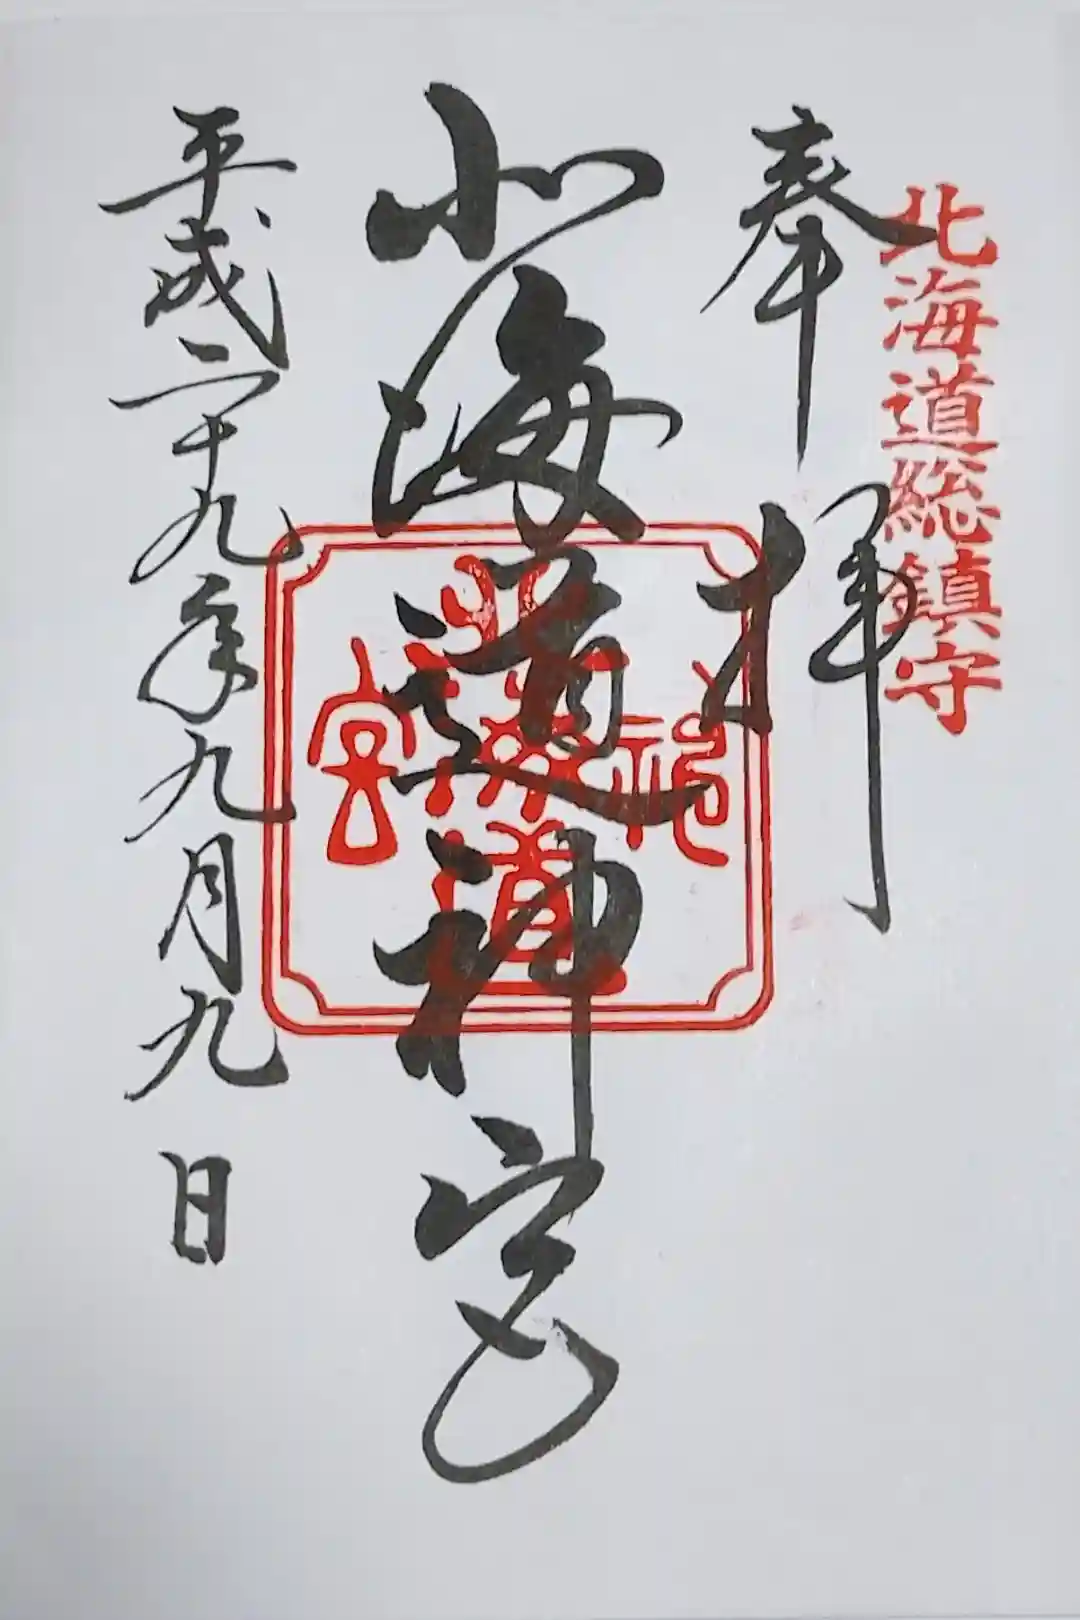 北海道総鎮守
奉拝
北海道神宮
北海道神宮
平成二十九年九月九日